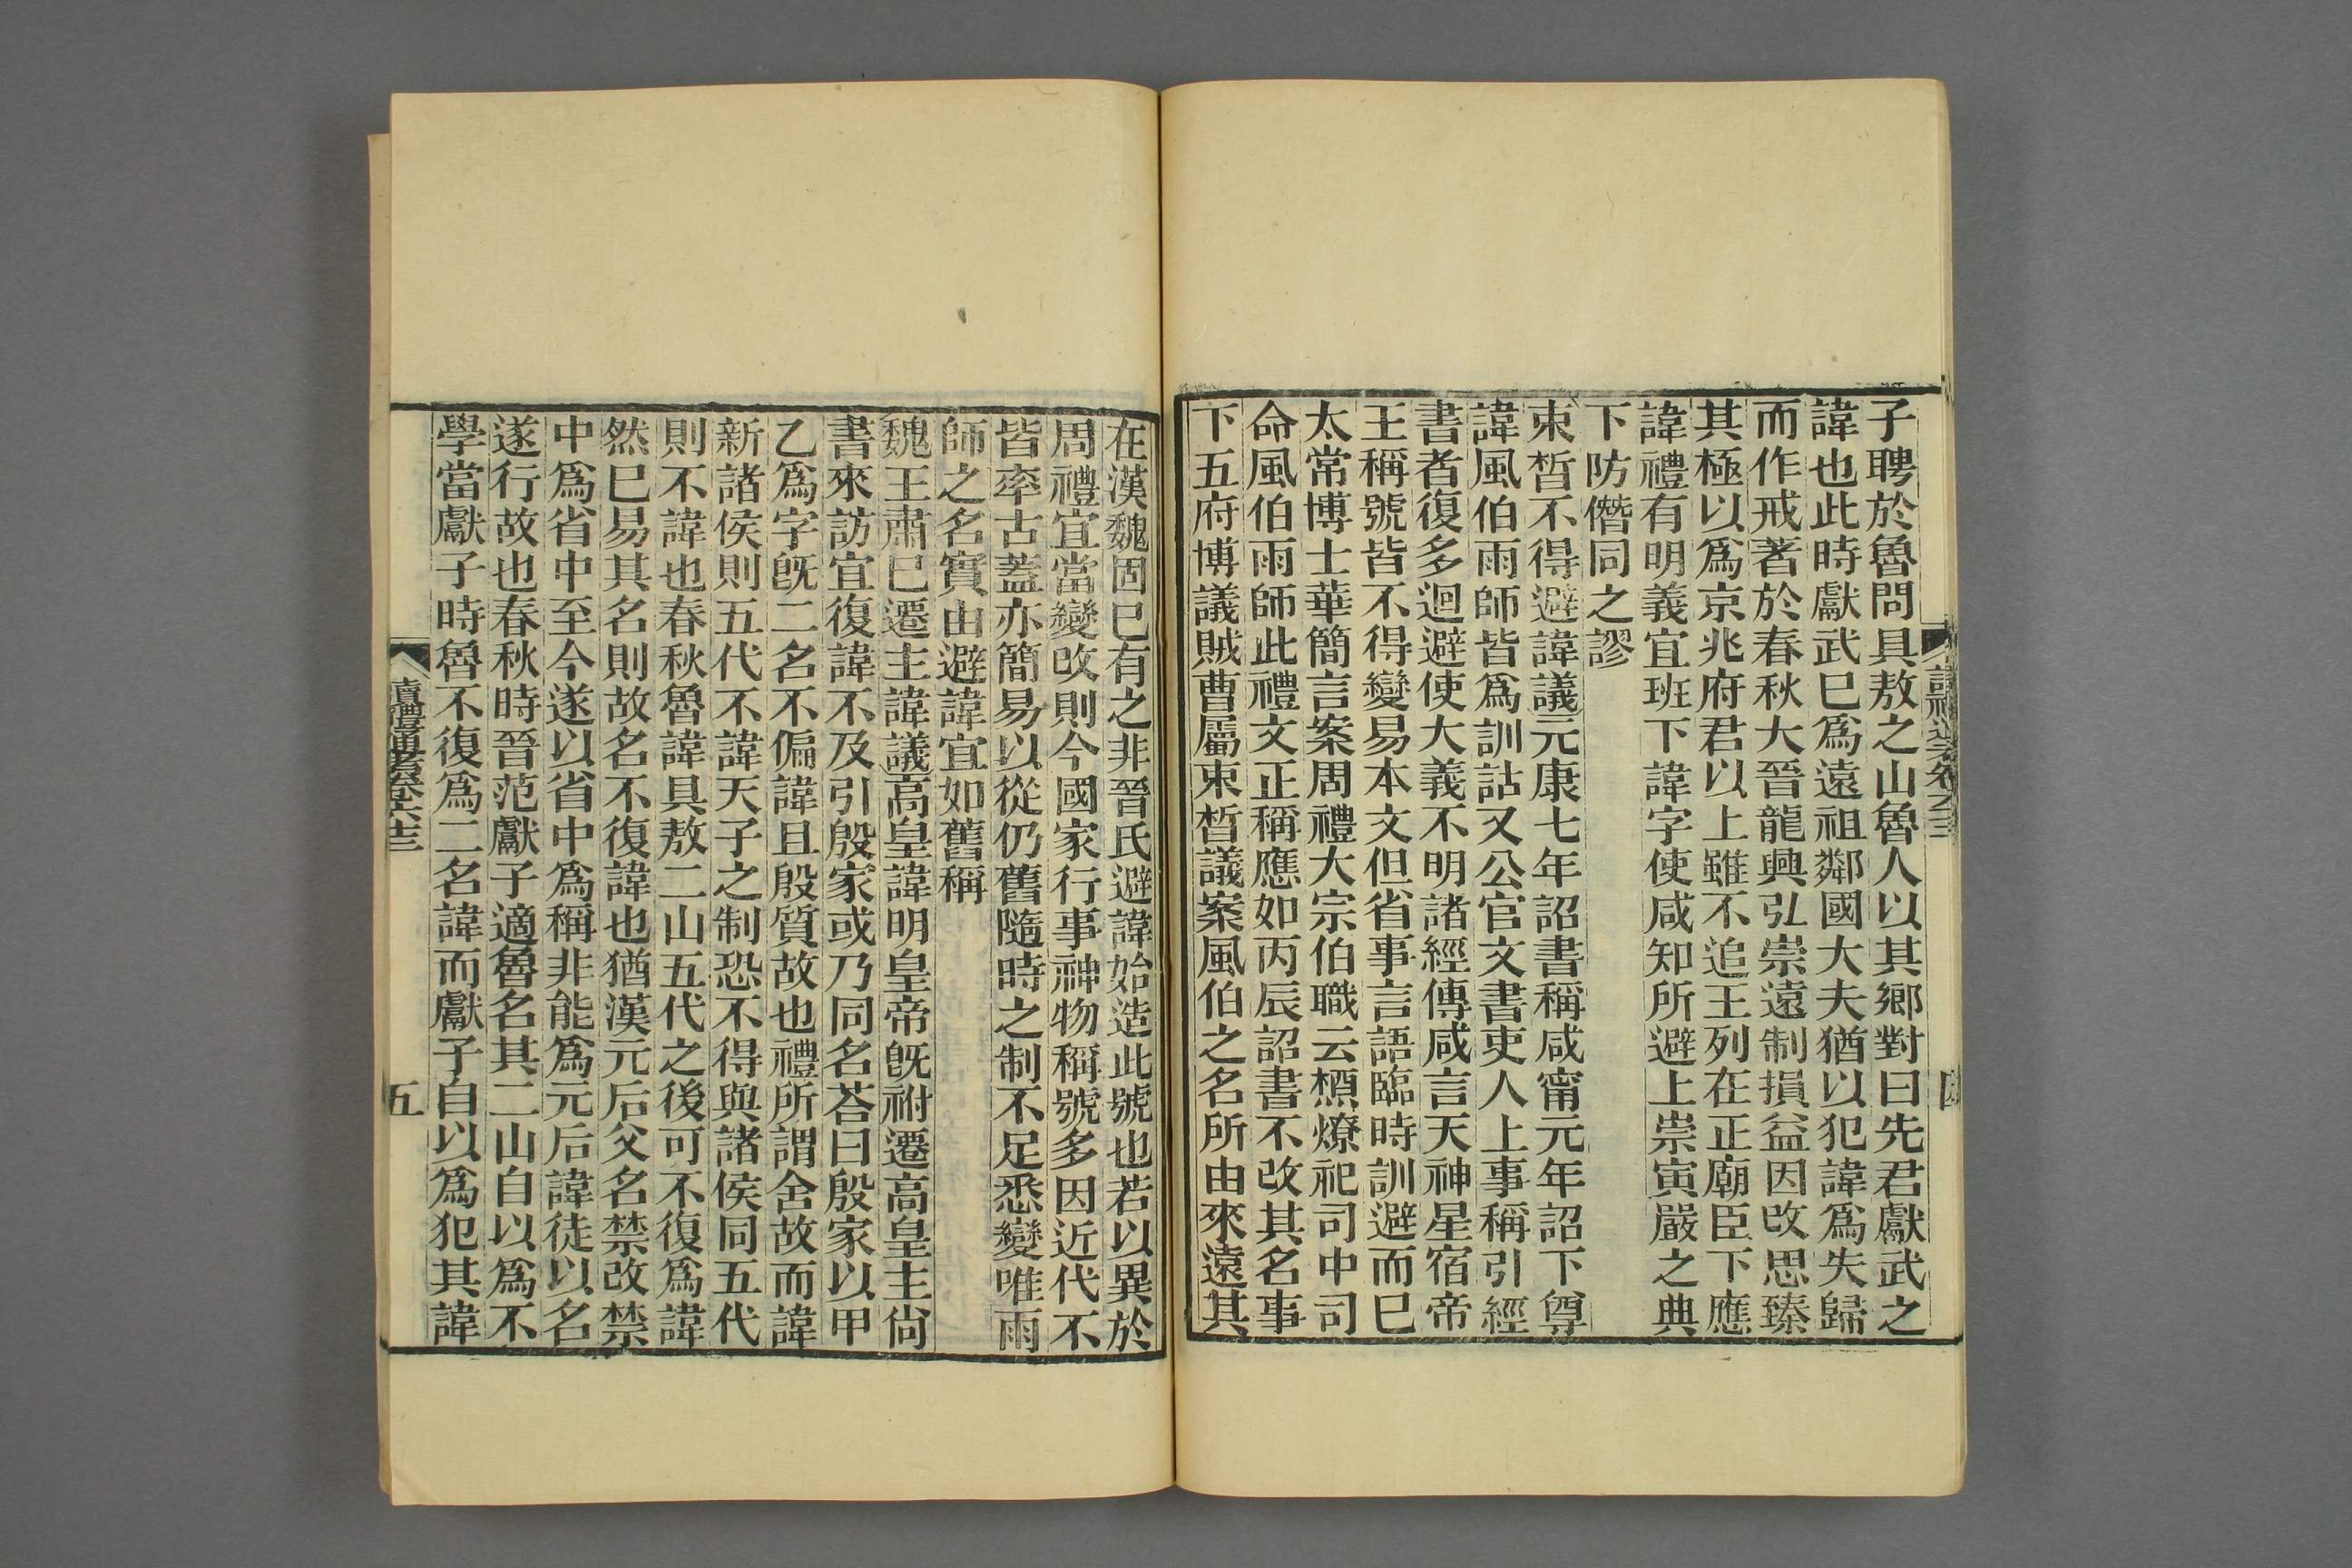 子聘於魯問具敖之山魯人以其鄉對曰先君獻武之
諱也此時獻武已爲遠祖鄰國大夫猶以犯諱爲失歸
而作戒著於春秋大晉龍興弘崇遠制損益因改思臻
其極以爲京兆府君以上雖不追王列在正廟臣下應
諱禮有明義宜班下諱字使咸知所避上崇寅嚴之典
下防僭同之謬
束皙不得避諱議元康七年詔書稱咸甯元年詔下尊
諱風伯雨師皆爲訓詁又公官文書吏人上事稱引經
書者復多迴避使大義不明諸經傳咸言天神星宿帝
王稱號皆不得變易本文但省事言語臨時訓避而已
太常博士華簡言案周禮大宗伯職云槱燎祀司中司
命風伯雨師此禮文正稱應如丙辰詔書不改其名事
下五府博議賊曹屬束皙議案風伯之名所由來遠其
在漢魏固已有之非晉氏避諱始造此號也若以異於
周禮宜當變改則今國家行事神物稱號多因近代不
皆率古蓋亦簡易以從仍舊隨時之制不足悉變唯雨
師之名實由避諱宜如舊稱
魏王肅已遷主諱議高皇諱明皇帝旣祔遷高皇主尙
書來訪宜復諱不及引殷家或乃同名荅曰殷家以甲
乙爲字旣二名不偏諱且殷質故也禮所謂舍故而諱
新諸侯則五代不諱天子之制恐不得與諸侯同五代
則不諱也春秋魯諱具敖二山五代之後可不復爲諱
然已易其名則故名不復諱也猶漢元后父名禁改禁
中爲省中至今遂以省中爲稱非能爲元后諱徒以名
遂行故也春秋時晉范獻子適魯名其二山自以爲不
學當獻子時魯不復爲二名諱而獻子自以爲犯其諱
讀禮通考卷六十三
五